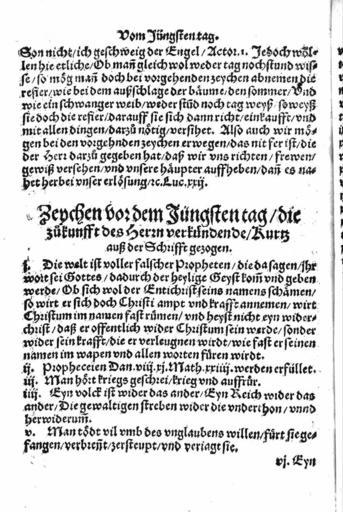 Vom Jüngsten tag.
Son nicht/ich geschweig der Engel/Actor.1. Jedoch wöl-
len hie etliche/Ob mañ gleich wol weder tag noch stund wis-
se/so mög mañ doch bei vorgehenden zeychen abnemen die
refier/wie bei dem außschlage der bäume/den sommer/Vnd
wie ein schwanger weib/weder stůnd noch tag weyß/so weyß
sie doch die refier/darauff sie sich dann richt/einkaufft/vnd
mit allen dingen/darzů nötig/versihet. Also auch wir mö-
gen bei den vorgehnden zeychen erwegen/das nit fer ist/die
der Herr darzů gegeben hat/daß wir vns richten/frewen/
gewiß versehen/vnd vnsere häupter auffheben/dañ es na-
het herbei vnser erlösung/ꝛc. Luc.xxij.
Zeychen vor dem Jüngsten tag/die
zůkunfft des Herrn verkündende/Kurtz
auß der Schrifft gezogen.
j. Die welt ist voller falscher Propheten/die da sagen/ihr
wort sei Gottes/dadurch der heylige Geyst kom̃ vnd geben
werde/Ob sich wol der Entichrist seins namens schämen/
so wirt er sich doch Christi ampt vnd krafft annemen/wirt
Christum im namen fast rümen/vnd heyst nicht eyn wider-
christ/daß er offentlich wider Christum sein werde/sonder
wider sein krafft/die er verleugnen wirdt/wie fast er seinen
namen im wapen vnd allen worten füren wirdt.
ij. Propheceien Dan.viij.xj.Math.xxiiij.werden erfüllet.
iij. Man hört kriegs geschrei/krieg vnd auffrür.
iiij. Eyn volck ist wider das ander/Eyn Reich wider das
ander/Die gewaltigen streben wider die vnderthon/vnnd
herwiderum̃.
v. Man tödt vil vmb des vnglaubens willen/fürt sie ge-
fangen/verbreñt/zersteupt/vnd veriagt sie.
vj. Eyn